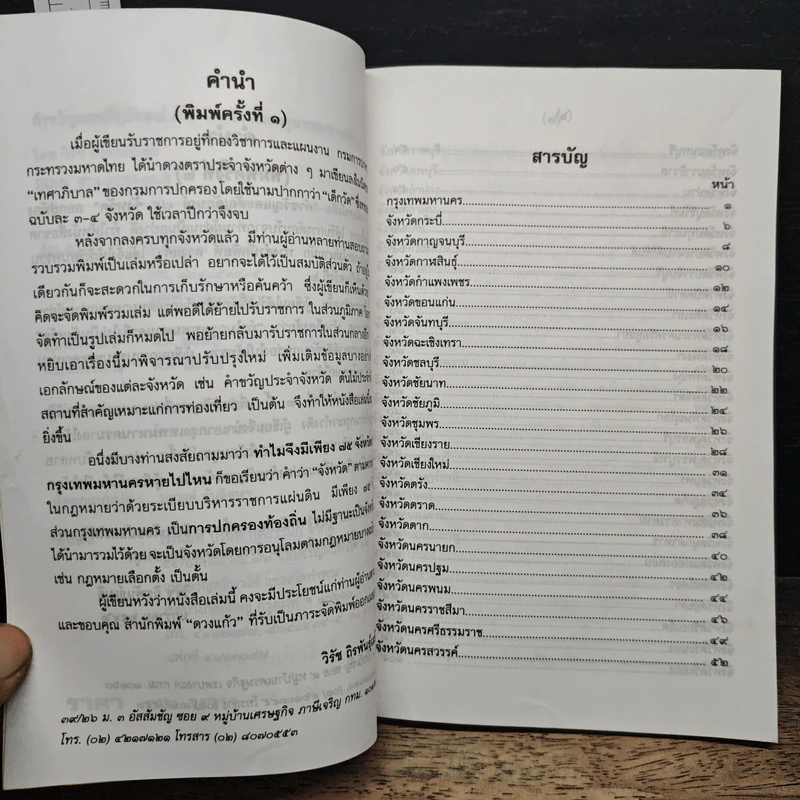 คำนำ
(พิมพ์ครั้งที่ ๑)
เมื่อผู้เขียนรับราชการอยู่ที่กองวิชาการและแผนงาน
กระทรวงมหาดไทย ได้นำดวงตราประจำจังหวัดต่าง ๆ
“เทศาภิบาล” ของกรมการปกครอง โดยใช้นามปากกาว่า “เด็กวัด”
ฉบับละ ๓-๔ จังหวัด ใช้เวลาปีกว่าจึงจบ
หลังจากลงครบทุกจังหวัดแล้ว มีท่านผู้อ่านหลายท่าน
รวบรวมพิมพ์เป็นเล่มหรือเปล่า อยากจะได้ไว้เป็นสมบัติส่วนตัว
เดียวกันก็จะสะดวกในการเก็บรักษาหรือค้นคว้า ซึ่งผู้เขียนก็เห็นด้วย
คิดจะจัดพิมพ์รวมเล่ม แต่พอดีได้ย้ายไปรับราชการ ในส่วนภูมิภาค
จัดทำเป็นรูปเล่มก็หมดไป พอย้ายกลับมารับราชการในส่วนกลาง
หยิบเอาเรื่องนี้มาพิจารณาปรับปรุงใหม่ เพิ่มเติมข้อมูลบางอย่าง
เอกลักษณ์ของแต่ละจังหวัด เช่น คำขวัญประจำจังหวัด ต้นไม้
สถานที่สำคัญเหมาะแก่การท่องเที่ยว เป็นต้น จึงทำให้หนังสือเล่มนี้
ยิ่งขึ้น
อนึ่งมีบางท่านสงสัยถามมาว่า ทำไมจึงมีเพียง ๗๕ จังหวัด
กรุงเทพมหานครหายไปไหน ก็ขอเรียนว่า คำว่า “จังหวัด”
ในกฎหมายว่าด้วยระเบียบบริหารราชการแผ่นดิน มีเพียง ๗๕
ส่วนกรุงเทพมหานคร เป็นการปกครองท้องถิ่น ไม่มีฐานะเป็น
ได้นำมารวมไว้ด้วย จะเป็นจังหวัดโดยการอนุโลมตามกฎหมาย
เช่น กฎหมายเลือกตั้ง เป็นต้น
ผู้เขียนหวังว่าหนังสือเล่มนี้ คงจะมีประโยชน์แก่ท่านผู้อ่าน
และขอบคุณ สำนักพิมพ์ “ดวงแก้ว” ที่รับเป็นภาระจัดพิมพ์
วิรัช ถิรพันธุ์
๓๙/๒๖ ม. ๓ อัสสัมชัญ ซอย ๙ หมู่บ้านเศรษฐกิจ ภาษีเจริญ กทม.
โทร. (๐๒) ๔๒๑๗๑๒๑ โทรสาร (๐๒) ๘๐๗๐๕๕๓
สารบัญ
หน้า
กรุงเทพมหานคร ๑
จังหวัดกระบี่ ๖
จังหวัดกาญจนบุรี ๘
จังหวัดกาฬสินธุ์ ๑๐
จังหวัดกำแพงเพชร ๑๒
จังหวัดขอนแก่น ๑๔
จังหวัดจันทบุรี ๑๖
จังหวัดฉะเชิงเทรา ๑๘
จังหวัดชลบุรี ๒๐
จังหวัดชัยนาท ๒๒
จังหวัดชัยภูมิ ๒๔
จังหวัดชุมพร ๒๖
จังหวัดเชียงราย ๒๘
จังหวัดเชียงใหม่ ๓๑
จังหวัดตรัง ๓๔
จังหวัดตราด ๓๖
จังหวัดตาก ๓๘
จังหวัดนครนายก ๔๐
จังหวัดนครปฐม ๔๒
จังหวัดนครพนม ๔๔
จังหวัดนครราชสีมา ๔๖
จังหวัดนครศรีธรรมราช ๔๙
จังหวัดนครสวรรค์ ๕๒